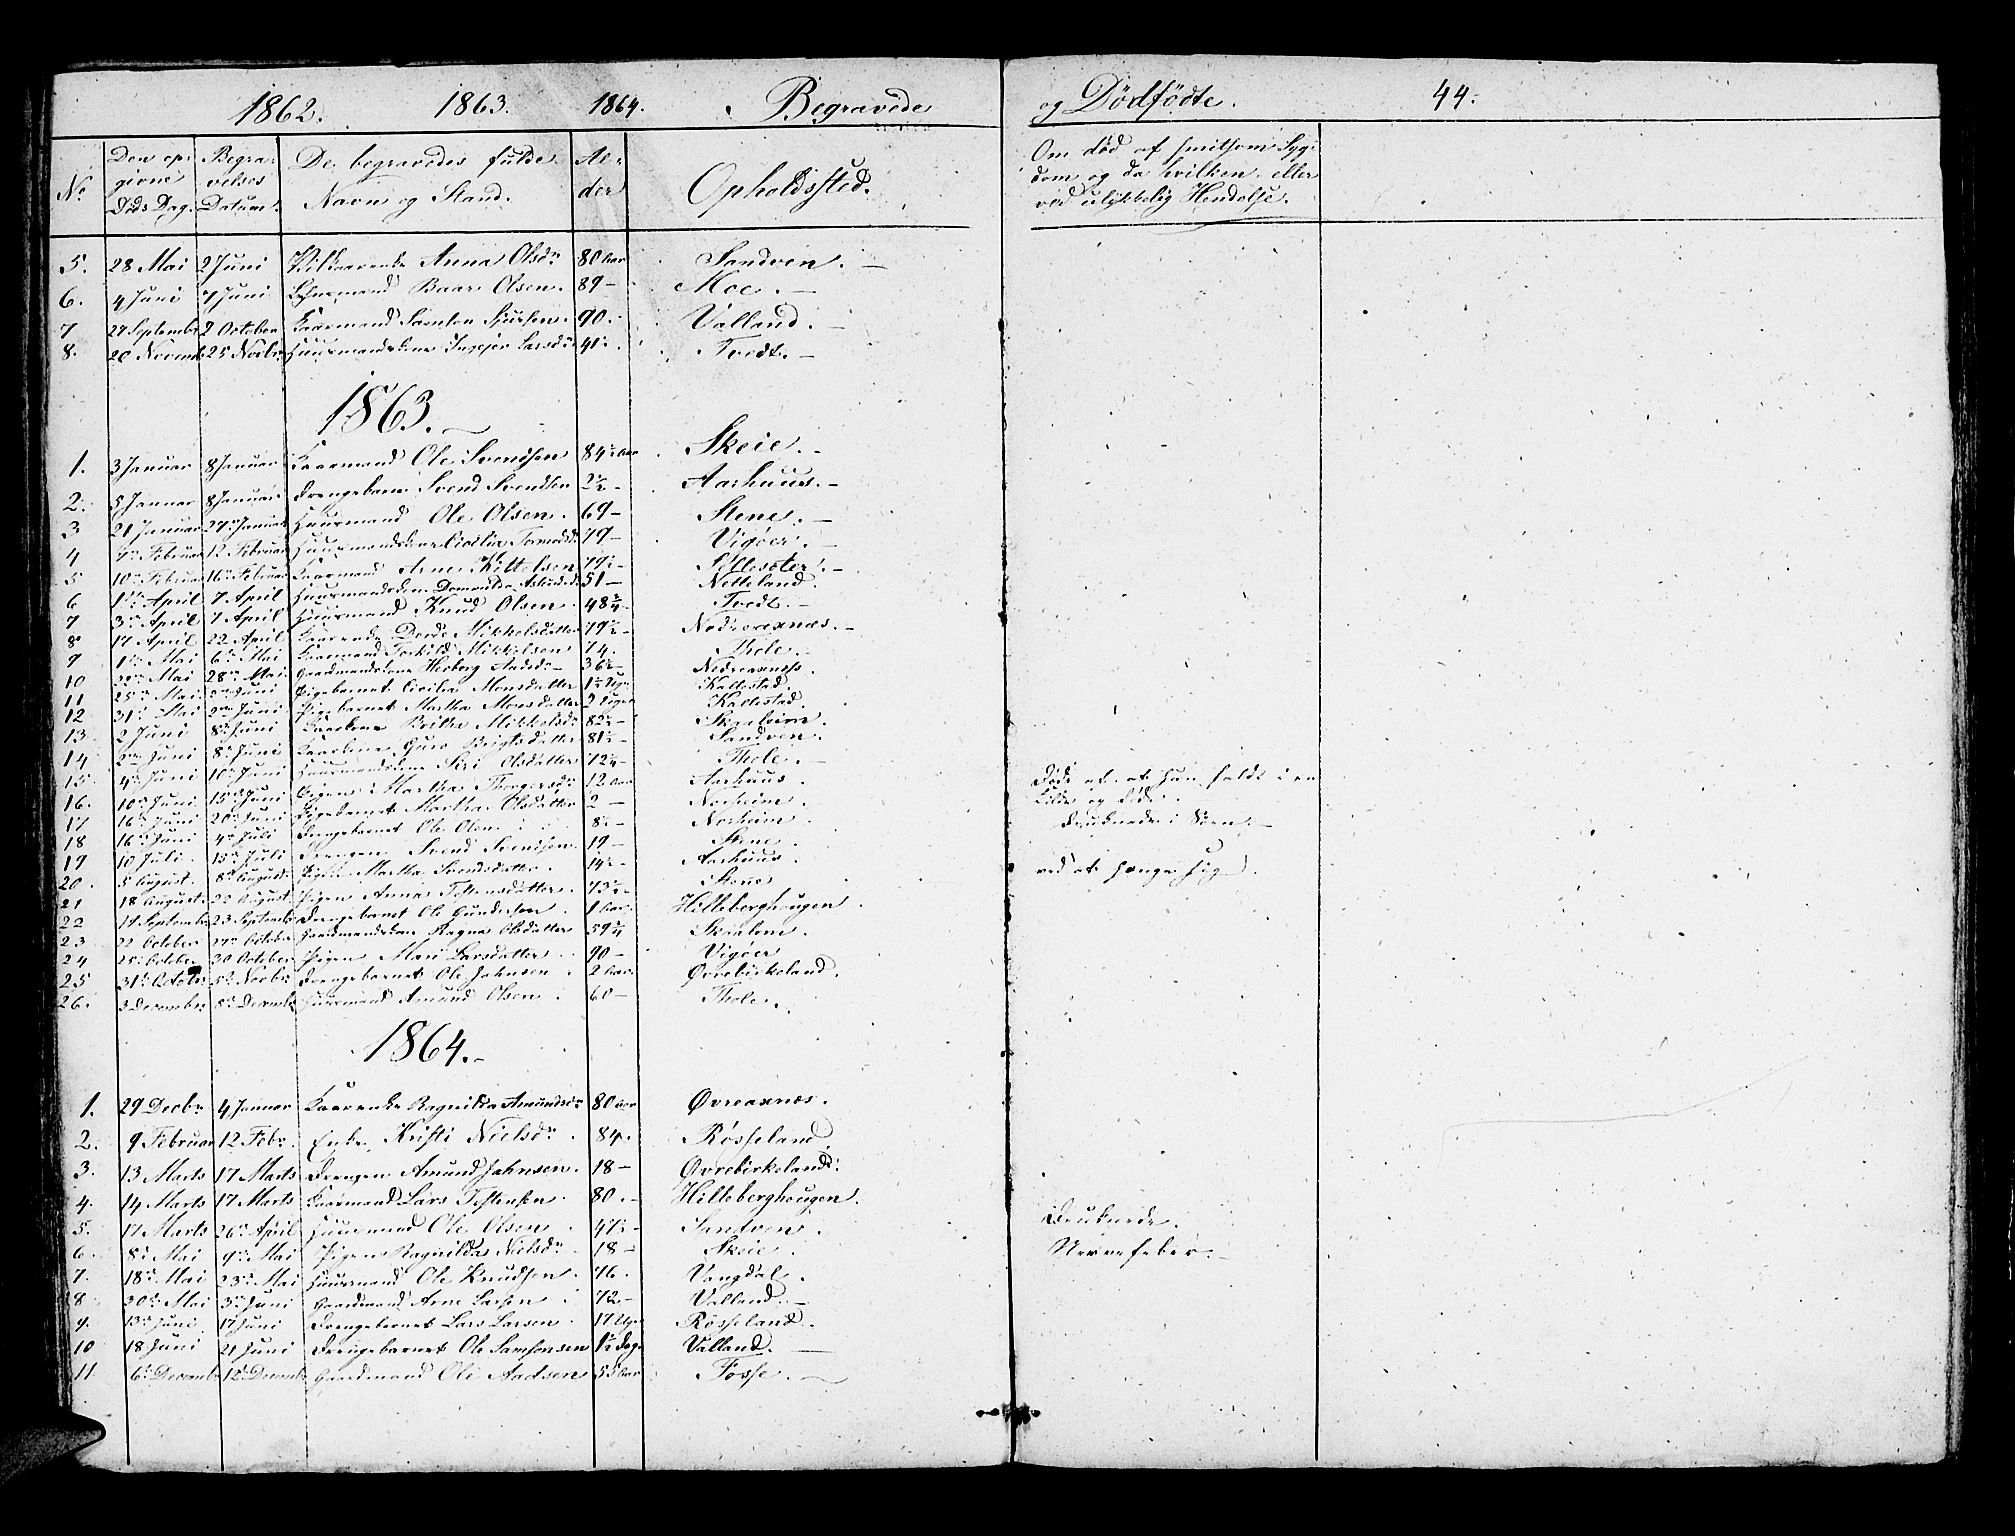 1862. 1863. 1864. Begravede og Dødfødte. 44.
No
Den op-
givne
Døds Dag.
Begra-
velses
Datum.
De begravedes fulde
Navn og Stand.
Al-
der
Opholdssted.
Om død af smitsom Syg-
dom og da hvilken, eller
ved ulykkelig Hendelse.
5. 28 Mai 2 Juni Anna Olsdr 80 Aar Sandven.
6. 4 Juni 7 Juni Huusmand Baar Olsen. 89 Moe.
7 27 September 2 October Kaarmand Samson Sjursen. 90. Valland.
8. 20 Novemb 25 Novbr Huusmandskone Ingejer Larsdr 41 Tvedt.
1863.
1. 3 Januar 8 Januar Kaarmand Ole Svendsen 84 1/2 Aar Skeie.
2. 5 Januar 8 Januar Drengebarn Svend Svendsen 2 1/2 Aarhuus.
3 21 Januar 27 Januar Huusmand Ole Olsen. 69 Stene.
4 7 Februar 12 Februar Huusmandskone Tormodsd 79 Vigøer.
5 10 Februar 16 Februar Kaarmand Arne Kittelsen 79 1/2
6 1 April 7 April Huusmandskone 51 Netteland.
7 3 April 7 April Huusmand Knud Olsen. 48 3/4 Tvedt.
8 17 April 22 April Kaarenke Dorde Mikkelsdatter 79 1/2 Nedreaxnæs.
9 1 Mai 6 Mai Kaarmand Torkild Mikkelsen 74. Thole.
10 22 Mai 28 Mai Gaardmandskone Herborg Aadsdr 36 1/2 Nedreaxness.
11 25 Mai 2 Juni Pigebarnet Cicilia Monsdatter 1 1/2 Uge Kaltestad.
12 31 Mai 2 Juni Pigebarnet Martha Monsdatter 2 Uger Kaltestad.
13. 2 Juni 8 Juni Kaarkone Brita Mikkelsdr 82 1/2 Skaalvim.
14 2 Juni 8 Juni Kaarkone Guro Brigtsdatter 81 1/2 Sandven.
15. 4 Juni 10 Juni Huusmandskone Siri Olsdatter 72 1/4 Thole.
16. 10 Juni 15 Juni Pigen Martha Thorgersdr 12 Aar Aarhuus. Døde af at hun faldt i en
Kilde og døde.
17 16 Juni 20 Juni Pigebarnet Martha Olsdatter 2 Norheim.
18 16 Juni 4 Juli Drengebarnet Ole Olsen 8 1/2 Norheim. Druknede i Søen.
19 10 Juli. 15 Juli Drengen Svend Svendsen 19 Stene.
20. 5 August. 8 August Pigen Martha Svendsdatter. 14 1/2 Aarhuus. ved at hænge sig.
21 18 August 22 August Pigen Anna Tostensdatter. 73 1/2 Stene
22 17 September 23 September Drengebarnet Ole Gundersen 1 Aar. Hilleberghougen.
23 22 October 27 October Gaardmandskone Ragna Olsdatter 59 3/4 Skaalem.
24 25 October 30 October Pigen Mari Larsdatter. 90 Vigøer
25 31 October 5 Novbr Drengebarnet Ole Johnsen 2 Aar. Øvrebirkeland.
26. 3 December 8 Decemb Huusmand Amund Olsen. 60 Thole.
1864.
1. 29 Decbr 4 Januar Kaarenke Ragnilda Amundsdr 80 Aar Øvreaxnæs.
2. 9 Februar 12 Febr. Enke Kristi Nielsdr 84. Røsseland.
3. 13 Marts 17 Marts Drengen Amund Johnsen. 18 Øvrebirkeland.
4. 14 Marts 17 Marts Kaarmand Lars Tostensen. 80. Hilleberghougen.
5. 17 Marts 26 April Huusmand Ole Olsen 47 1/2 Sandven. Druknede.
6. 8 Mai 9 Mai Pigen Ragnilda Nielsdr 18 Skeie. Nervefeber.
7. 18 Mai 23 Mai Huusmand Ole Knudsen. 76. Vangdal.
8 30 Mai 3 Juni Gaardmand Arne Larsen 72 Valland.
9. 13 Juni 17 Juni Drengebarnet Lars Larsen. 17 Uger Røsseland.
10 18 Juni 21 Juni Drengebarnet Ole Samsonsen 1 1/2 Dag Valland.
11. 6 Decemb 12 Decemb Gaardmand Ole Aadsen 55 Aar Fosse.